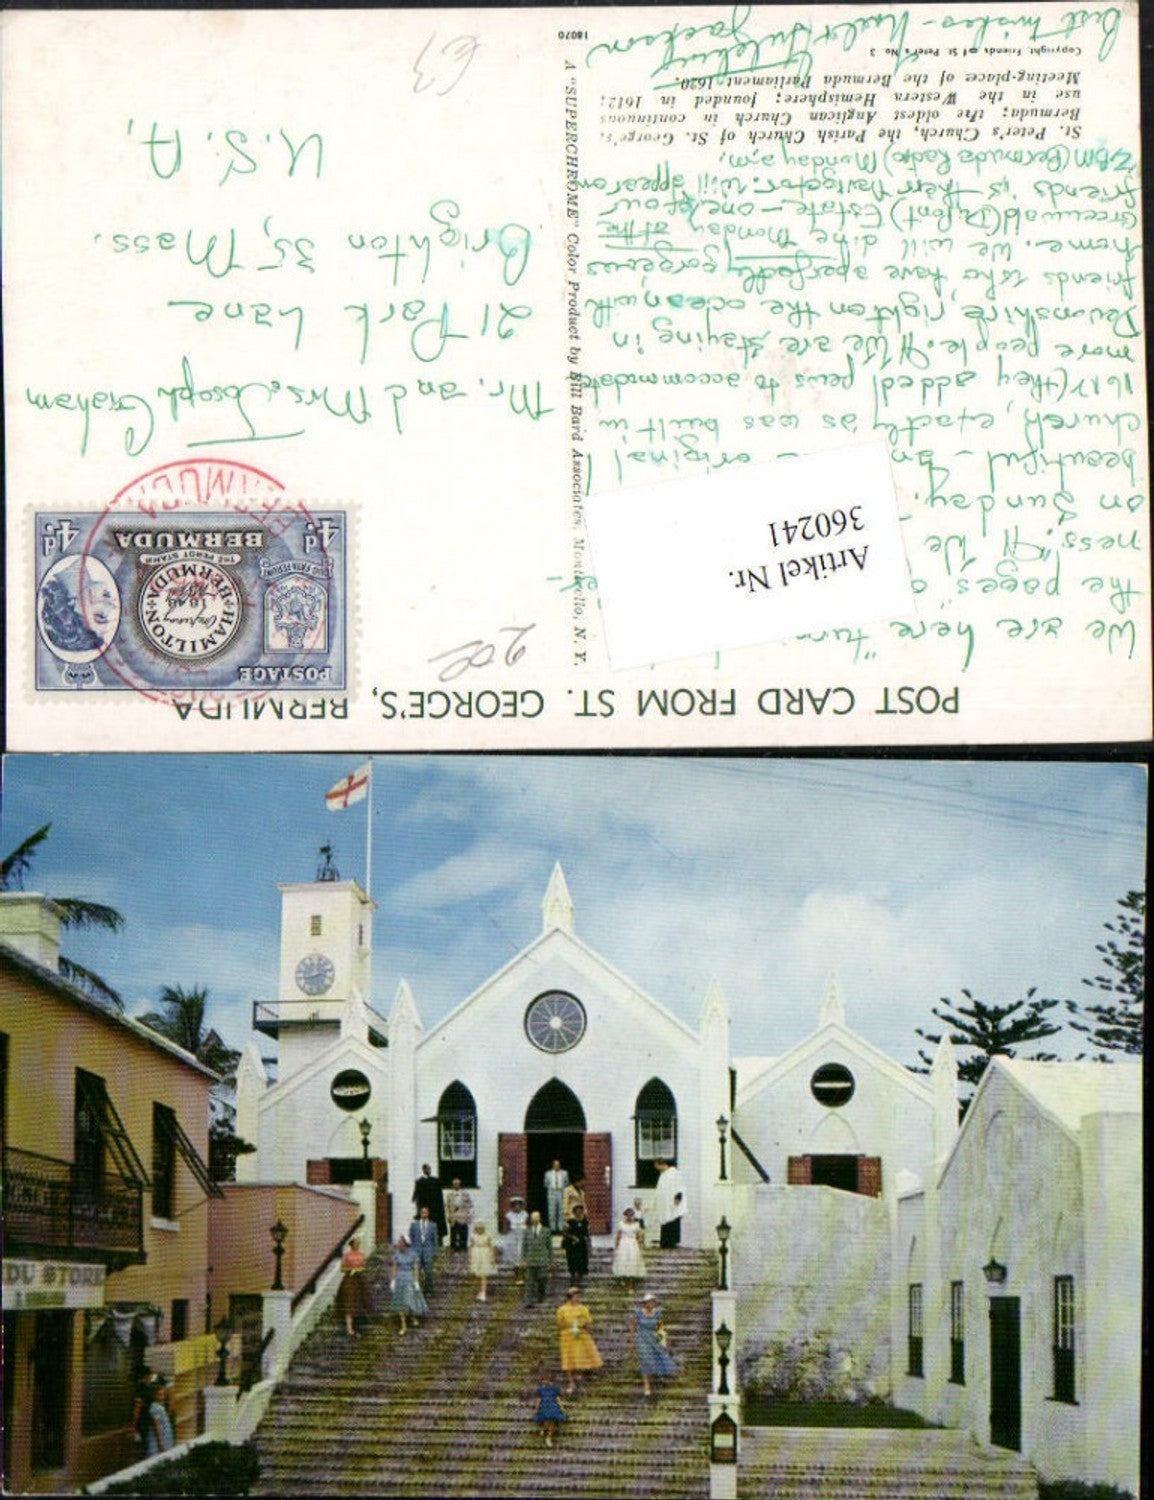 POST CARD FROM ST. GEORGE'S, BERMUDA
We are here "turnin
the pages o
ness." We
on Sunday.
beautiful - an original
church, exactly as was built in
1612 (they added pews to accommodate
more people. We are staying in
Devonshire, right on the ocean with
friends who have a perfectly gorgeous
home. We will dine Monday at the
Greenwald (Dupont) Estate - one of our
friends is their navigator. Will appear on
ZBM (Bermuda Radio) Monday a.m.
St. Peter's Church, the Parish Church of St. George's,
Bermuda; the oldest Anglican Church in continuous
use in the Western Hemisphere; founded in 1612;
Meeting-place of the Bermuda Parliament 1620.
Copyright, Friends of St. Peter's No 3
Best wishes -
Jackson
Artikel Nr.
360241
A "SUPERCHROME" Color Product by Bill Bard Associates, Monticello, N. Y.
18070
Mr. and Mrs. Joseph Graham
21 Park Lane
Brighton 35, Mass.
U. S. A.
POSTAGE
HAMILTON BERMUDA
1848
THE PEROT STAMP
BERMUDA
QUO FATA FERUNT
4d
4d
BERMUDA
£3
DU STORE